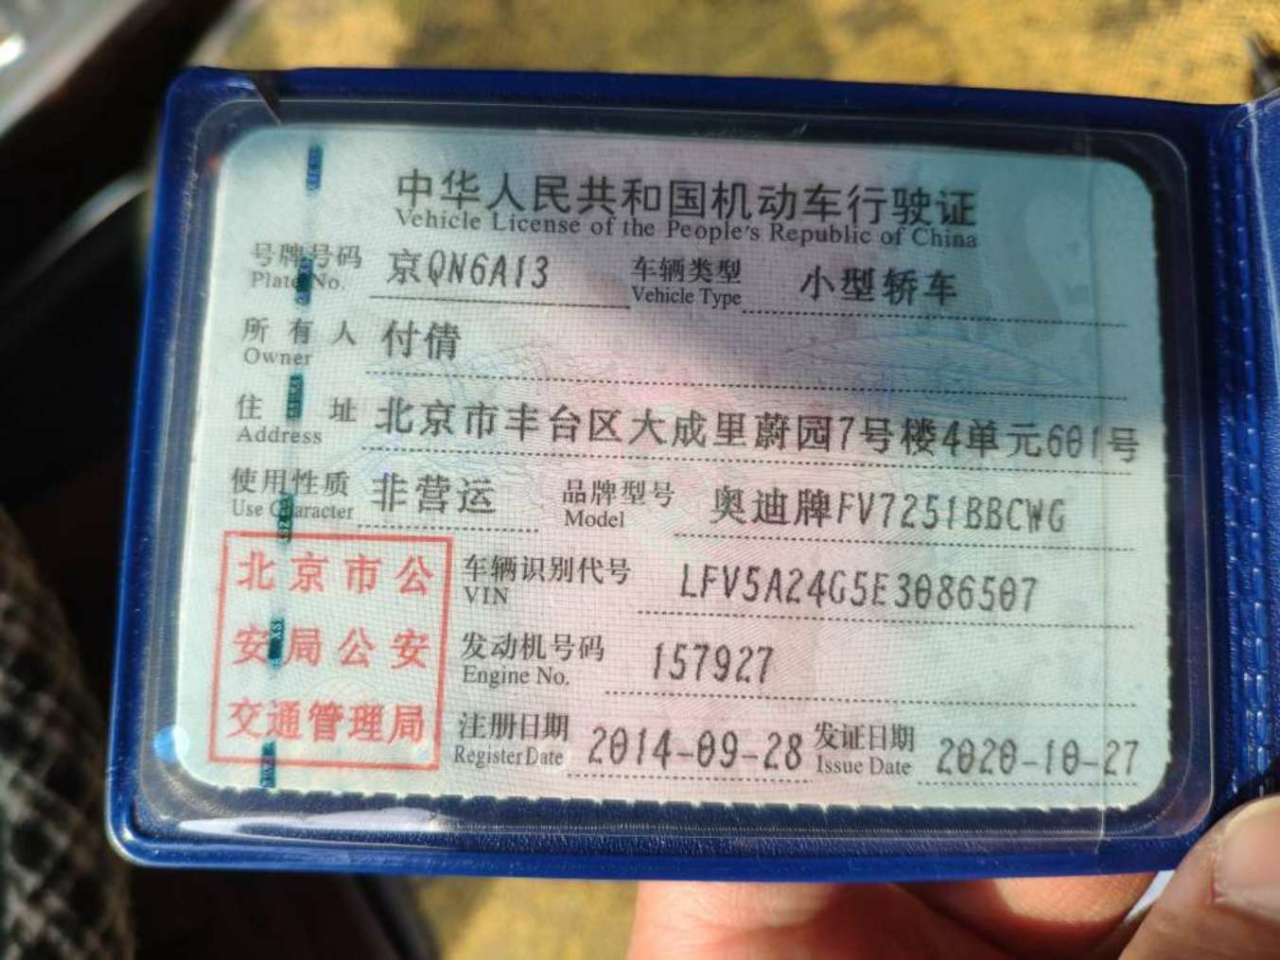 中华人民共和国机动车行驶证
Vehicle License of the People's Republic of China
号牌号码 京QN6A13 车辆类型 小型轿车
Plate No. Vehicle Type
所有人 付倩
Owner
住址 北京市丰台区大成里蔚园7号楼4单元601号
Address
使用性质 非营运 品牌型号 奥迪牌FV7251BBCWG
Use Character Model
车辆识别代号 LFV5A24G5E3086507
VIN
发动机号码 157927
Engine No.
注册日期 2014-09-28 发证日期 2020-10-27
Register Date Issue Date
北京市公
安局公安
交通管理局